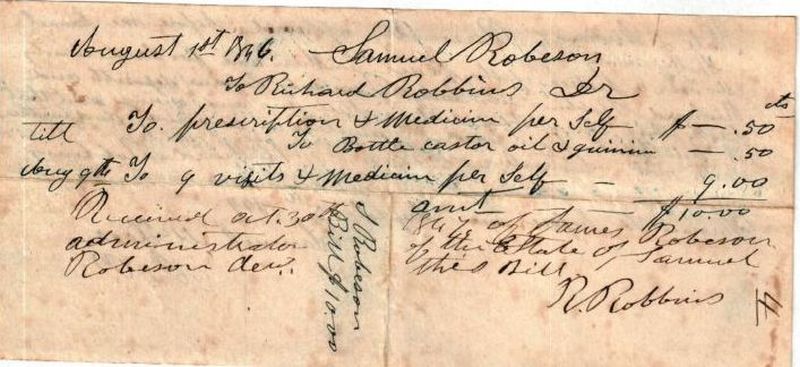 August 1st 1846. Samuel Robeson
To Richard Robbins Dr
To prescription & Medicin per Self $ — .50 cts
till To Bottle castor oil & quinin — .50
Aug 9th To 9 visits & Medicin per Self — 9.00
amt $10.00
Received Oct. 30th 1847 of James Robeson
administrator of the Estate of Samuel
Robeson dec. this Bill
R. Robbins
S Robeson
Bill $10.00
4